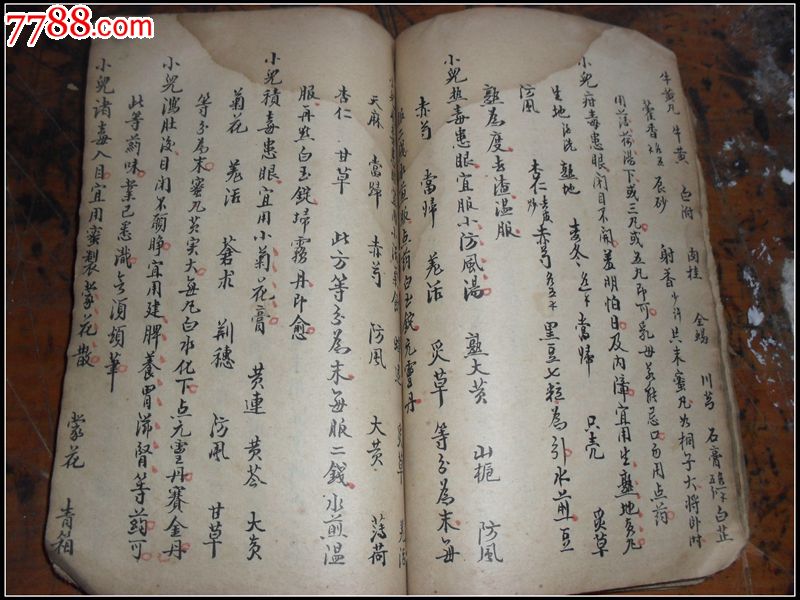 7788.com
牛黄丸 牛黄 白附 肉桂 全蝎 川芎 石膏 白芷
藿香 辰砂 射香少许 共末蜜丸如桐子大将卧时
用薄荷汤下或三丸或五丸即可乳母亦能忌口勿用点药
小兒疳毒患眼闭目不開羞明怕日及内障宜用生熟地黄丸
生地 酒洗 熟地 麦冬 当歸 只壳 炙草
防風 杏仁 赤芍 黑豆七粒為引水煎豆
熟為度去渣温服
小兒熱毒患眼宜服小防風湯 熟大黄 山栀 防風
赤芍 當歸 羌活 炙草 等分為末每
天麻 當歸 赤芍 防風 大黄 薄荷
杏仁 甘草 此方等分為末每服二錢水煎温
服再點白玉錠掃霧丹即愈
小兒積毒患眼宜用小菊花膏 黄連 黄芩 大黄
菊花 羌活 蒼术 荆穗 防風 甘草
等分為末蜜丸芡实大每丸白水化下点元霊丹賽金丹
小兒瀉肚後目闭不願睁宜用建脾養胃滋腎等药可
此等药味業已悉識無須頌筆
小兒諸毒入目宜用蜜製蒙花散 蒙花 青箱